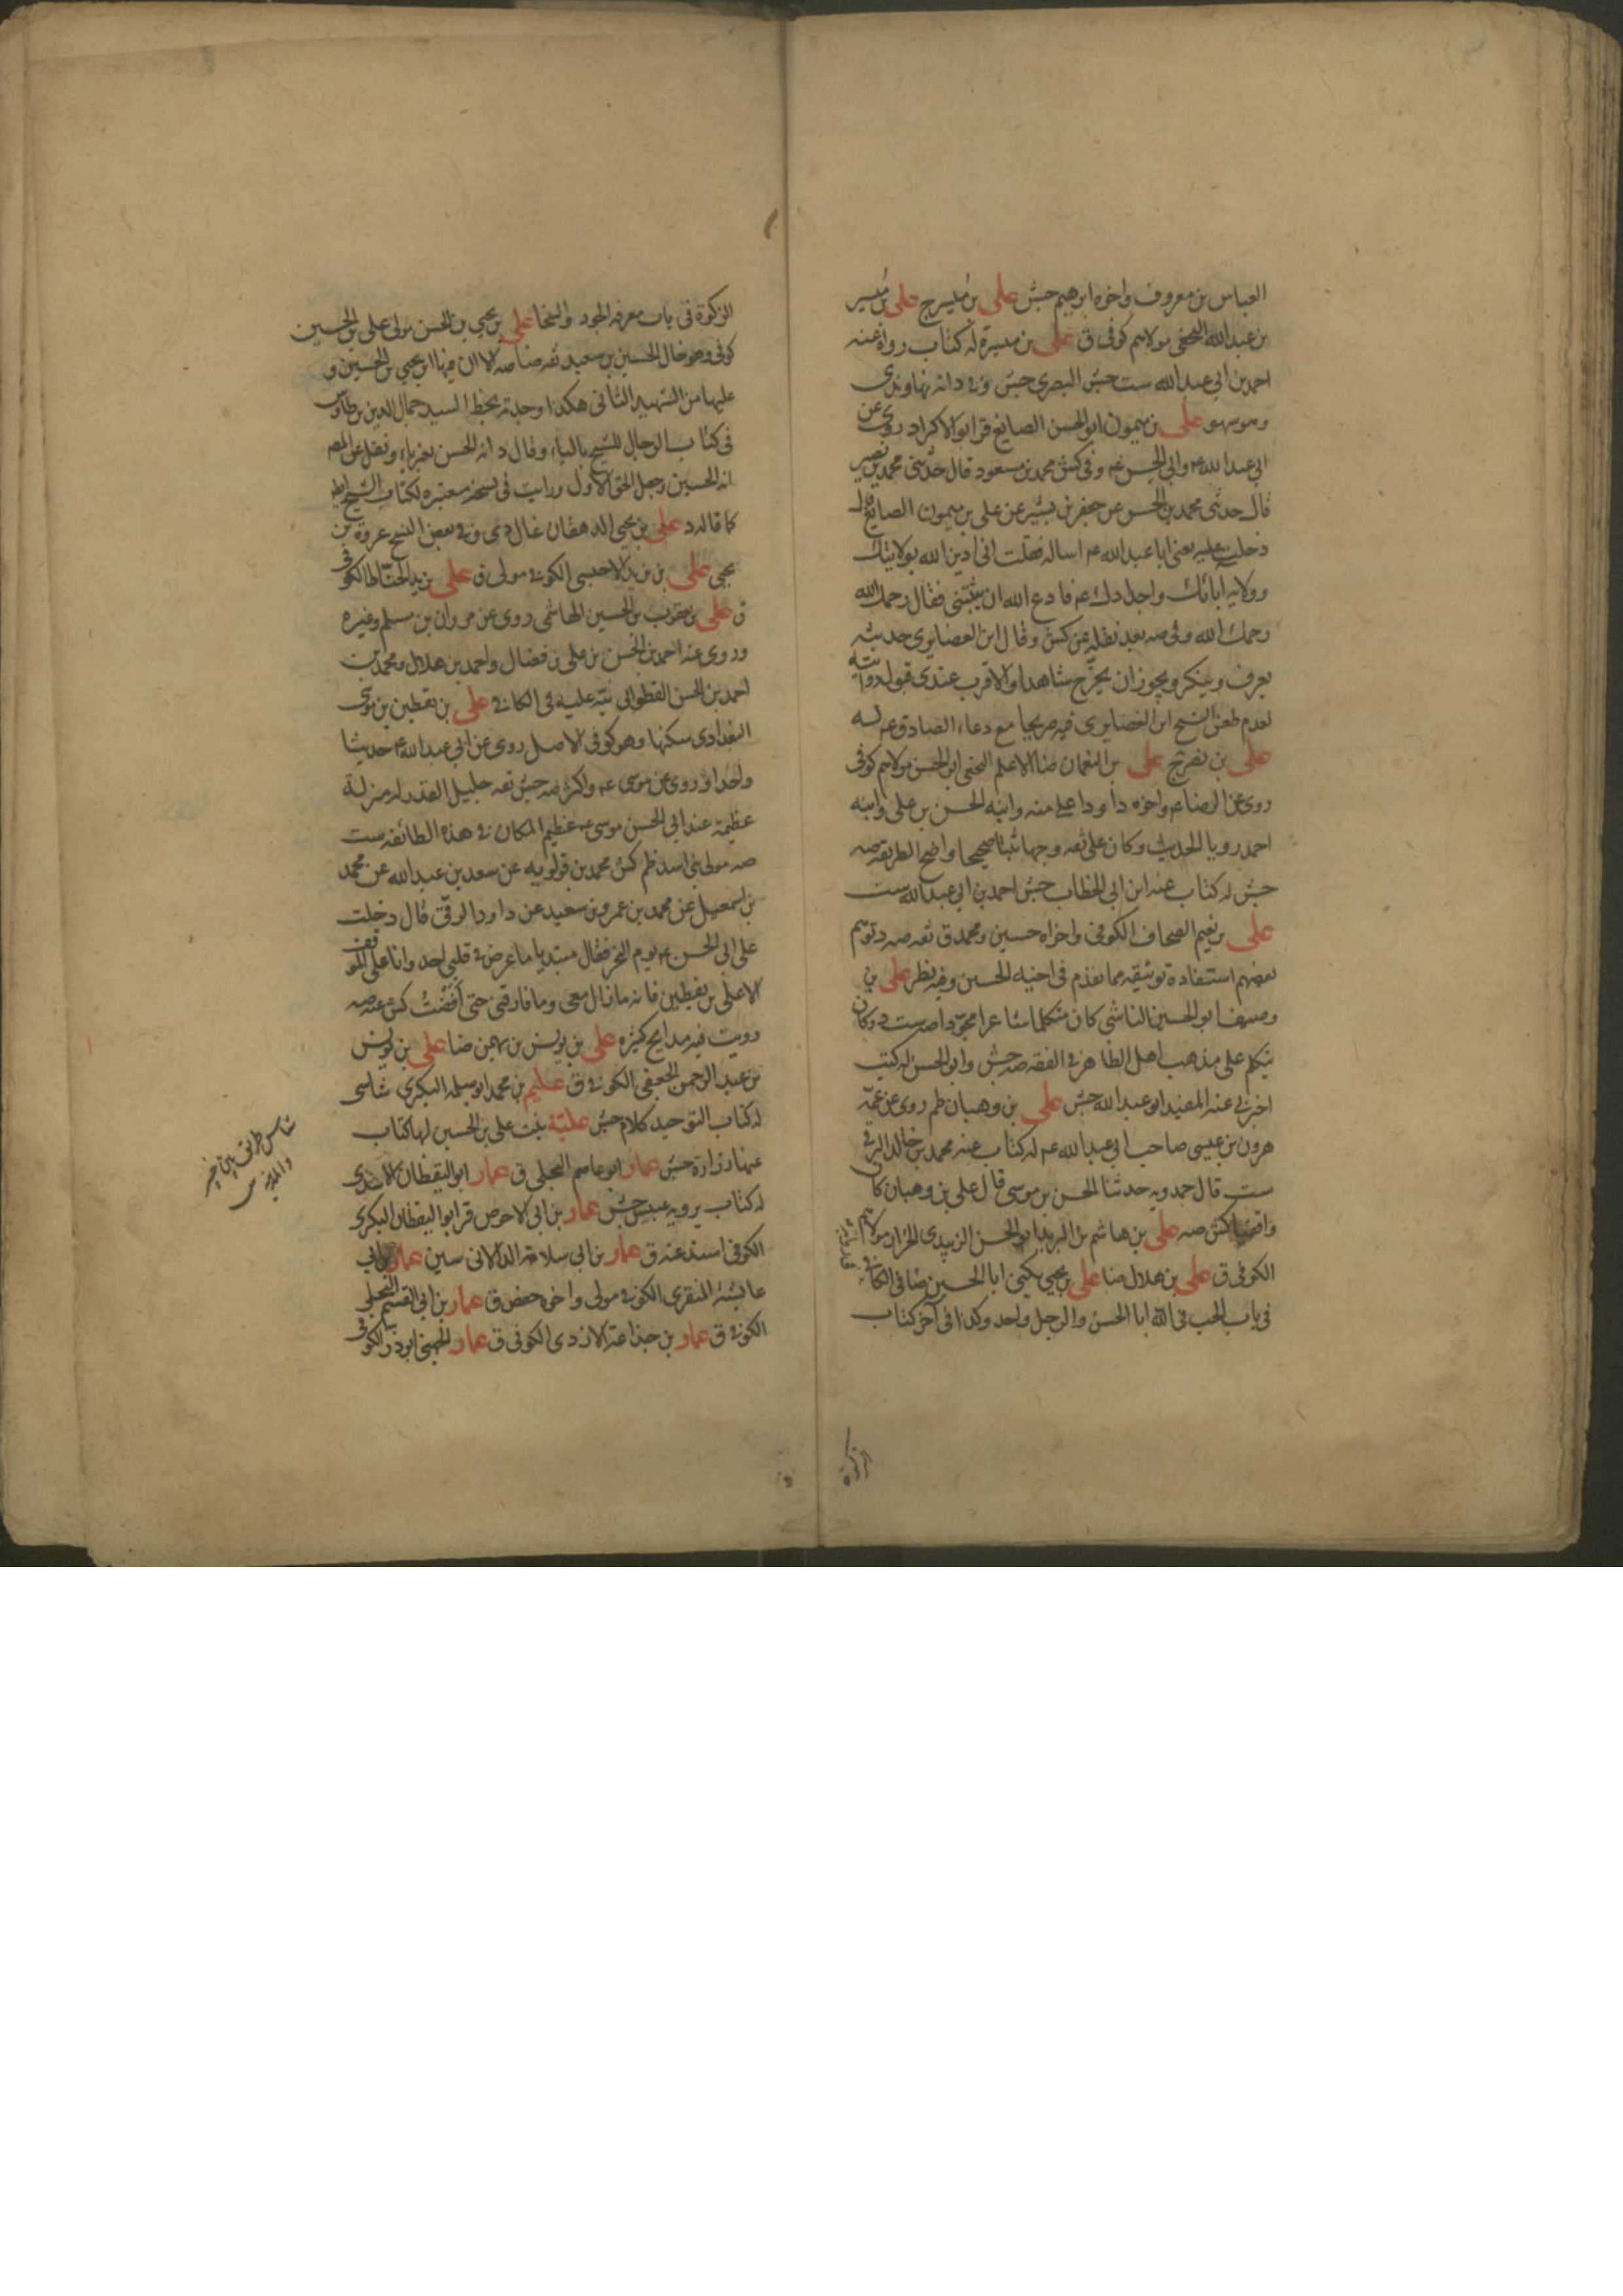 العباس بن معروف واخوه ابرهيم جش على بن ميسرج على بن ميسر
بن عبدالله النخعى مولاهم كوفى ق على بن ميسرة له كتاب رواه عنه
احمد بن ابى عبدالله ست جش البصرى جش وفى د انه نهاوندى
وهو سهو على بن ميمون ابو الحسن الصايغ قر ابو الاكراد روى عن
ابى عبدالله ع وابى الحسن ع وفى كش محمد بن مسعود قال حدثنى محمد بن نصير
قال حدثنى محمد بن الحسن عن جعفر بن بشير عن على بن ميمون الصايغ قال
دخلت عليه يعنى ابا عبدالله ع اساله فقلت انى ادين الله بولايتك
وولاية ابائك واجدادك ع فادع الله ان يثبتنى فقال رحمك الله
رحمك الله وفى صه بعد نقله عن كش وقال ابن الغضايرى حديثه
يعرف وينكر ويجوز ان يخرج شاهدا والاقرب عندى قبول روايته
لعدم طعن الشيخ ابن الغضايرى فيه صريحا مع دعاء الصادق ع له
على بن نصر ج على بن النعمان ضا الاعلم النخعى ابو الحسن مولاهم كوفى
روى عن الرضا ع واخوه داود اعلى منه وابنه الحسن بن على وابنه
احمد رويا الحديث وكان على ثقه وجها ثبتا صحيحا واضح الطريقه صه
جش له كتاب عنه ابن ابى الخطاب جش احمد بن ابى عبدالله ست
على بن نعيم الصحاف الكوفى واخواه حسين ومحمد ق ثقه صه د توهم
بعضهم استفادة توثيقه مما تقدم فى اخيه الحسين وفيه نظر على بن
وصيف ابو الحسين الناشى كان متكلما شاعرا مجودا صه ست د وكان
يتكلم على مذهب اهل الظاهر فى الفقه صه جش وابو الحسن له كتب
اخبرنى عنه المفيد ابو عبدالله جش على بن وهبان لم روى عن عمه
هرون بن عيسى صاحب ابى عبدالله ع له كتاب عنه محمد بن خالد البرقى
ست قال حمدويه حدثنا الحسن بن موسى قال على بن وهبان كان
واقفيا كش صه على بن هاشم بن البريد ابو الحسن الزبيدى الخزاز مولاهم
الكوفى ق على بن هلال ضا على بن يحيى يكنى ابا الحسين ضا فى الكافى
فى باب الحب فى الله ابا الحسن والرجل واحد وكذا فى آخر كتاب
الزكوة
الزكوة فى باب معرفه الجود والسخا على بن يحيى بن الحسن مولى على بن الحسين
كوفى وهو خال الحسين بن سعيد ثقه ضا صه الا ان فيها ابن يحيى بن الحسين و
عليها من الشهيد الثانى هكذا وجدته بخط السيد جمال الدين بن طاوس
فى كتاب الرجال للشيخ بالياء وقال د انه الحسن بغير ياء ونقل عن المصـ
انه الحسين وجعل الحق الاول ورايت فى نسخة معتبره لكتاب الشيخ ايضا
كما قاله د على بن يحيى الدهقان غال دى وفى بعض النسخ عروة بن
يحيى على بن يزيد الاحمسى الكوفى مولى ق على بن يزيد الحناط الكوفى
ق على بن يعقوب بن الحسين الهاشمى روى عن مروان بن مسلم وغيره
وروى عنه احمد بن الحسن بن على بن فضال واحمد بن هلال ومحمد بن
احمد بن الحسن القطوانى نبه عليه فى الكافى على بن يقطين بن موسى
البغدادى سكنها وهو كوفى الاصل روى عن ابى عبدالله ع حديثا
واحدا وروى عن موسى ع واكثر صه جش ثقه جليل القدر له منزلة
عظيمة عند ابى الحسن موسى ع عظيم المكان فى هذه الطائفه ست
صه مولى بنى اسد ظم كش محمد بن قولويه عن سعد بن عبدالله عن محمد
بن اسمعيل عن محمد بن عمرو بن سعيد عن داود الرقى قال دخلت
على ابى الحسن ع يوم النحر فقال مبتديا ما عرض فى قلبى احد وانا على الموقف
الا على بن يقطين فانه ما زال معى وما فارقنى حتى افضت كش عنه صه
رويت فيه مدايح كثيره على بن يونس بن بهمن ضا على بن يونس
بن عبد الرحمن الجعفى الكوفى ق عليم بن محمد ابو سلمه البكرى شاسى
له كتاب التوحيد كلام جش علية بنت على بن الحسين لها كتاب
عنها زرارة جش عمار ابو عاصم البجلى ق عمار ابو اليقظان الاسدى
له كتاب يرويه عبيس جش عمار بن ابى الاحوص قر ابو اليقظان البكرى
الكوفى اسند عنه ق عمار بن ابى سلامة الدالانى سين عمار بن ابى
عايشة المنقرى الكوفى مولى واخوه حفص ق عمار بن ابى القسم البجلى
الكوفى ق عمار بن جذاعة الازدى الكوفى ق عمار الجهنى ابو ذر الكوفى